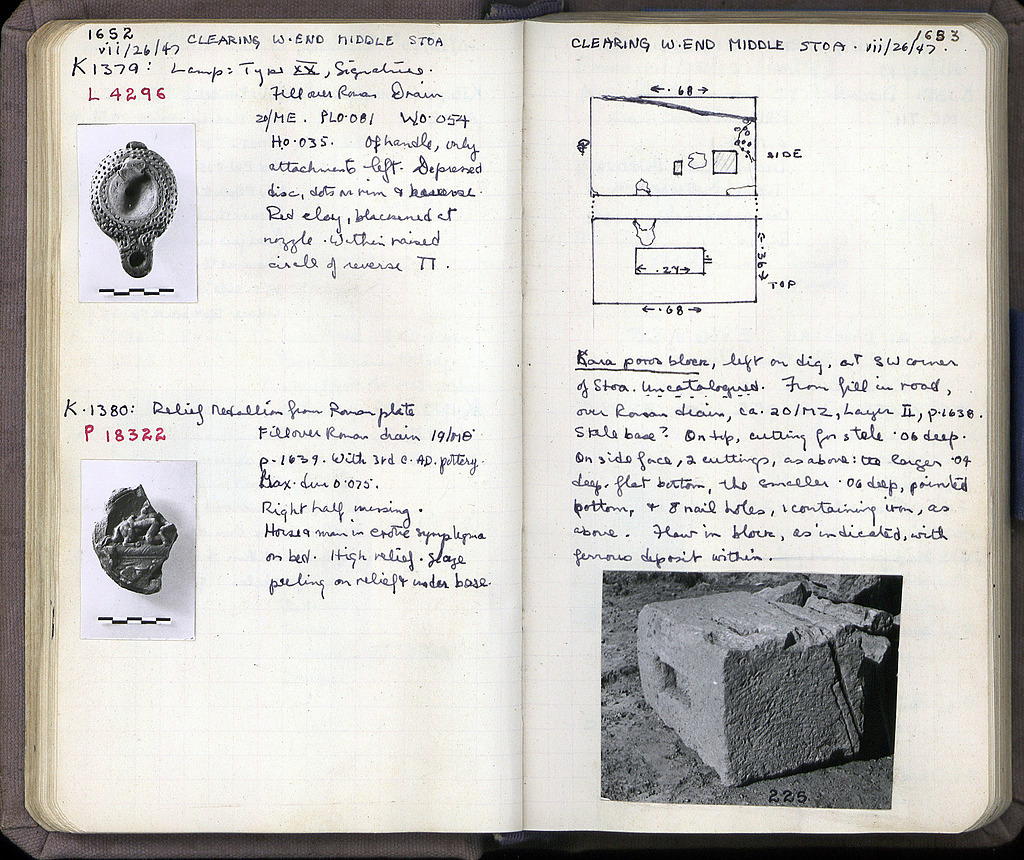 1652
vii/26/47 CLEARING W·END MIDDLE STOA
K1379: Lamp: Type XX, Signature.
L 4296
Fill over Roman Drain
20/ME. PL 0·081 W 0·054
H 0·035. Of handle, only
attachments left. Depressed
disc, dots on rim & reverse.
Red clay, blackened at
nozzle. Within raised
circle of reverse Π.
K·1380: Relief Medallion from Roman plate
P 18322
Fill over Roman drain 19/ME
p·1639. With 3rd C. A.D. pottery.
Max. dim 0·075.
Right half missing.
Horse & man in erotic symplegma
on bed. High relief. Glaze
peeling on relief & under base.
1653
CLEARING W·END MIDDLE STOA · vii/26/47·
·68
SIDE
·27
·36
TOP
·68
Kara poros block, left on dig, at SW corner
of Stoa. Uncatalogued. From fill in road,
over Roman drain, ca. 20/MZ, Layer II, p·1638.
Stele base? On top, cutting for stele ·06 deep.
On side face, 2 cuttings, as above: the larger ·04
deep, flat bottom, the smaller ·06 deep, pointed
bottom, & 8 nail holes, 1 containing iron, as
above. Flaw in block, as indicated, with
ferrous deposit within.
225